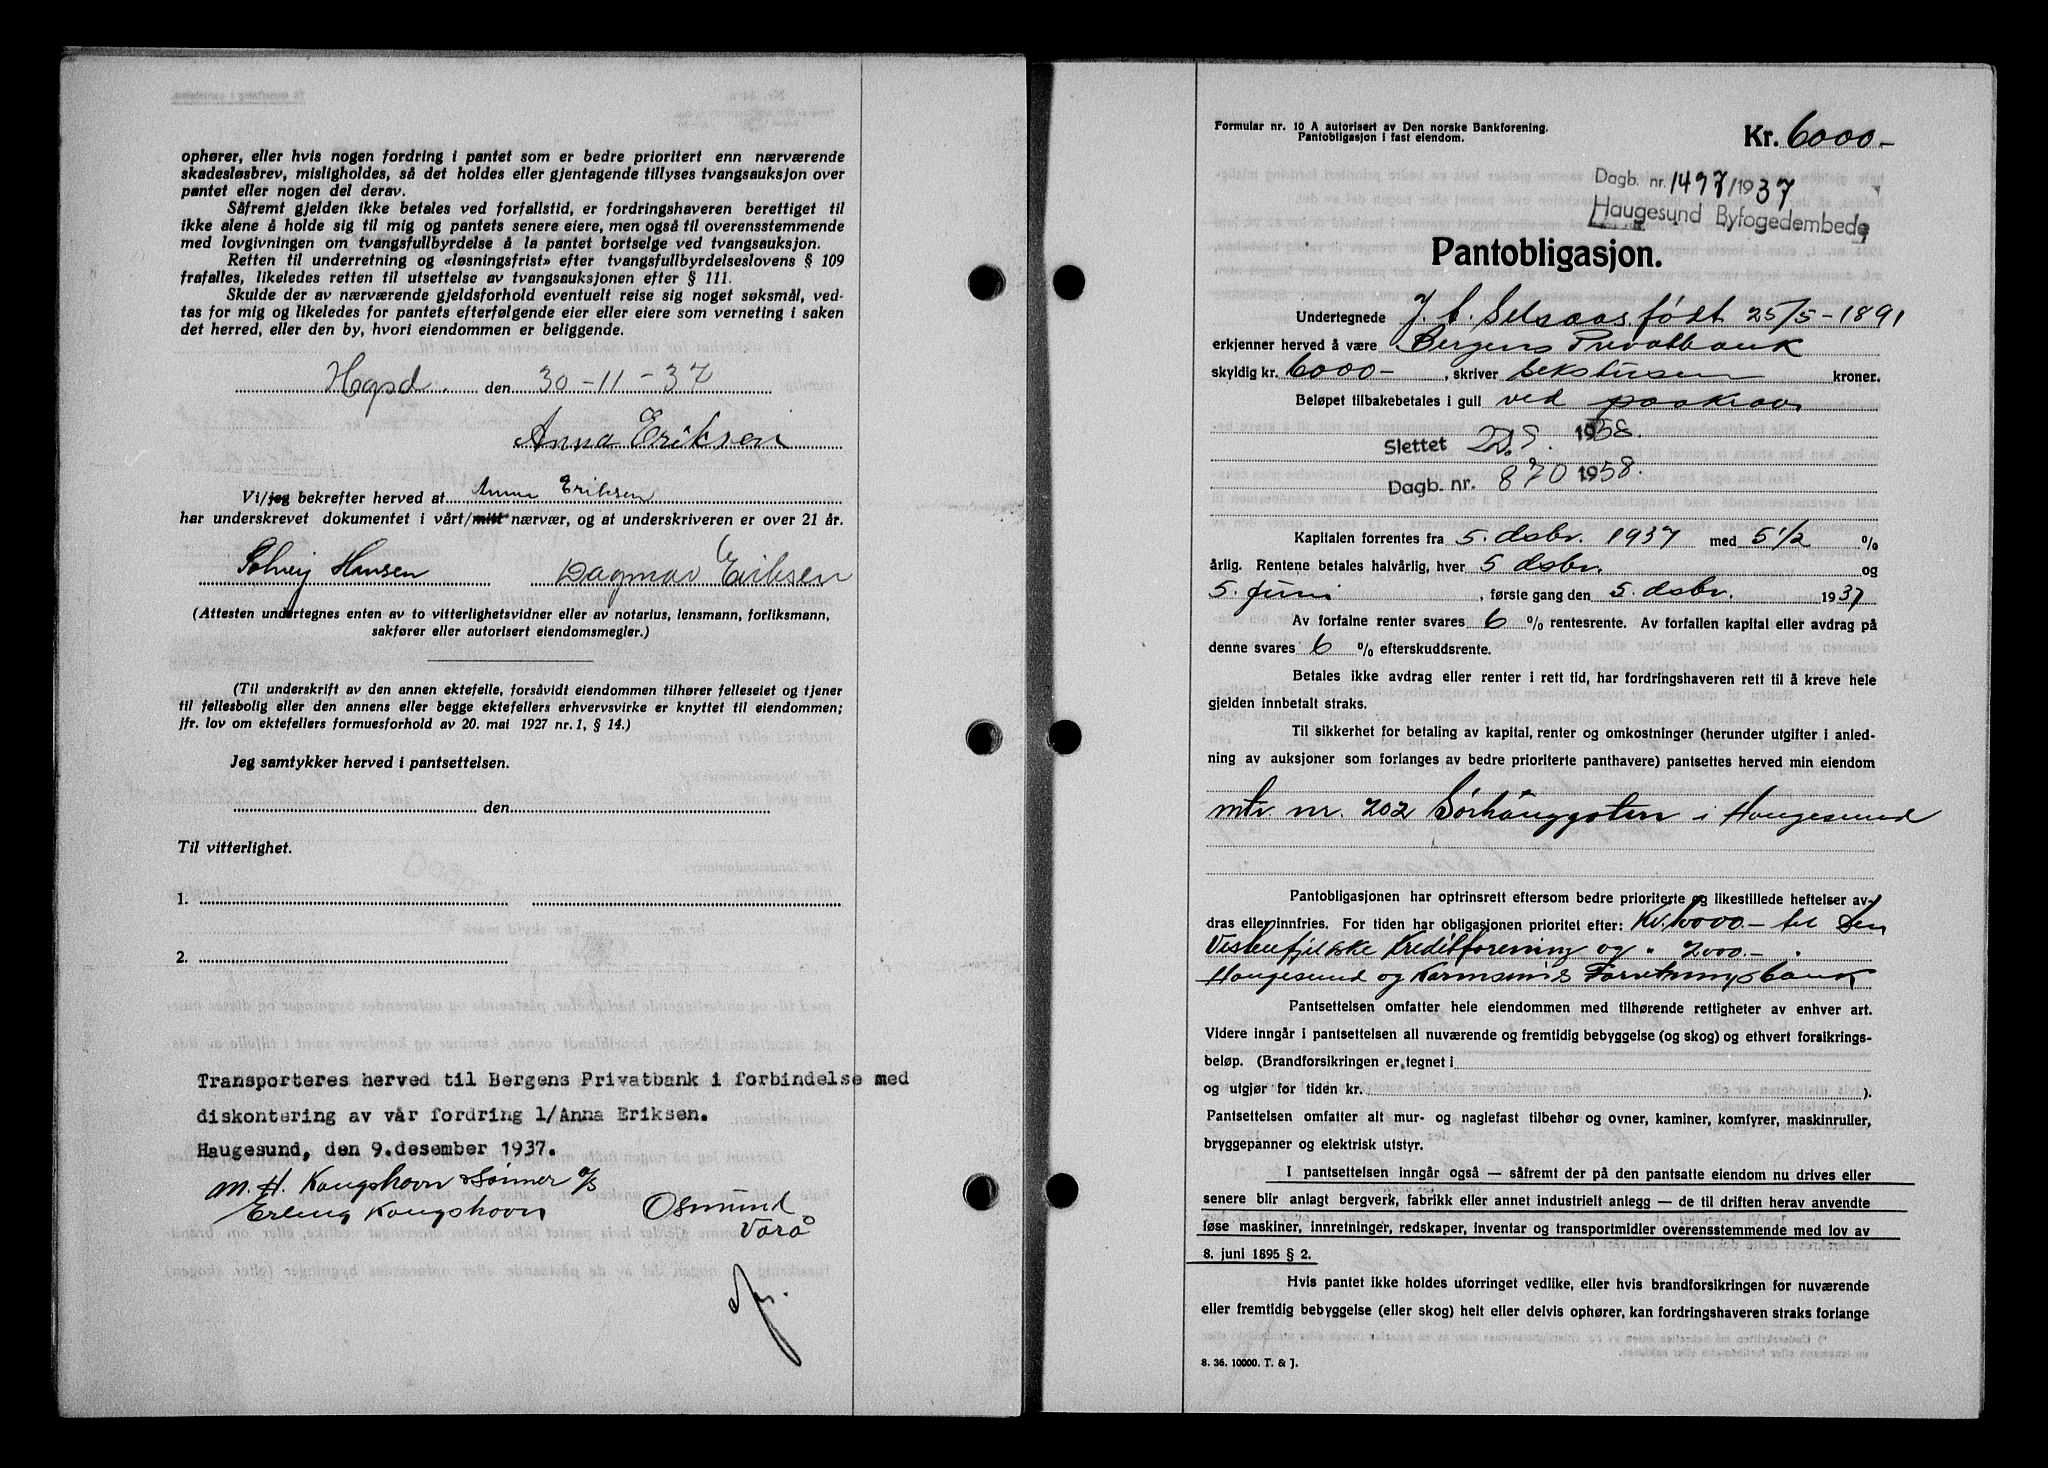 ophører, eller hvis nogen fordring i pantet som er bedre prioritert enn nærværende
skadesløsbrev, misligholdes, så det holdes eller gjentagende tillyses tvangsauksjon over
pantet eller nogen del derav.
Såfremt gjelden ikke betales ved forfallstid, er fordringshaveren berettiget til
ikke alene å holde sig til mig og pantets senere eiere, men også til overensstemmende
med lovgivningen om tvangsfullbyrdelse å la pantet bortselge ved tvangsauksjon.
Retten til underretning og «løsningsfrist» efter tvangsfullbyrdelseslovens § 109
frafalles, likeledes retten til utsettelse av tvangsauksjonen efter § 111.
Skulde der av nærværende gjeldsforhold eventuelt reise sig noget søksmål, ved-
tas for mig og likeledes for pantets efterfølgende eier eller eiere som verneting i saken
det herred, eller den by, hvori eiendommen er beliggende.
Hgsd. den 30-11-37
Anna Eriksen
Vi/jeg bekrefter herved at Anna Eriksen
har underskrevet dokumentet i vårt/mitt nærvær, og at underskriveren er over 21 år.
Solveig Hansen Dagmar Eriksen
(Attesten undertegnes enten av to vitterlighetsvidner eller av notarius, lensmann, forliksmann,
sakfører eller autorisert eiendomsmegler.)
(Til underskrift av den annen ektefelle, forsåvidt eiendommen tilhører felleseiet og tjener
til fellesbolig eller den annens eller begge ektefellers erhvervsvirke er knyttet til eiendommen;
jfr. lov om ektefellers formuesforhold av 20. mai 1927 nr. 1, § 14.)
Jeg samtykker herved i pantsettelsen.
den
Til vitterlighet.
1.
2.
Transporteres herved til Bergens Privatbank i forbindelse med
diskontering av vår fordring l/Anna Eriksen.
Haugesund, den 9.desember 1937.
M. H. Kongshavn & Sønner A/S
Erling Kongshavn Osmund
Vorå
Formular nr. 10 A autorisert av Den norske Bankforening.
Pantobligasjon i fast eiendom.
Kr. 6000.-
Dagb. nr. 1497/1937
Haugesund Byfogedembede
Pantobligasjon.
Undertegnede J. C. Selsaas født 25/5-1891
erkjenner herved å være Bergens Privatbank
skyldig kr. 6000.-, skriver sekstusen kroner.
Beløpet tilbakebetales i gull ved paakrav
Slettet 1958.
Dagb. nr. 870 1958.
Kapitalen forrentes fra 5. dsbr. 1937 med 5 1/2 %
årlig. Rentene betales halvårlig, hver 5 dsbr. og
5. Juni, første gang den 5. dsbr. 1937
Av forfalne renter svares 6 % rentesrente. Av forfallen kapital eller avdrag på
denne svares 6 % efterskuddsrente.
Betales ikke avdrag eller renter i rett tid, har fordringshaveren rett til å kreve hele
gjelden innbetalt straks.
Til sikkerhet for betaling av kapital, renter og omkostninger (herunder utgifter i anled-
ning av auksjoner som forlanges av bedre prioriterte panthavere) pantsettes herved min eiendom
mtr nr. 202 Sørhauggaten i Haugesund
Pantobligasjonen har optrinsrett eftersom bedre prioriterte og likestillede heftelser av-
dras eller innfries. For tiden har obligasjonen prioritet efter: Kr. 6000.- til Den
Vestenfjelske Kreditforening og " 2000.- "
Haugesund og Karmsunds Forretningsbank
Pantsettelsen omfatter hele eiendommen med tilhørende rettigheter av enhver art.
Videre inngår i pantsettelsen all nuværende og fremtidig bebyggelse (og skog) og ethvert forsikrings-
beløp. (Brandforsikringen er tegnet i
og utgjør for tiden kr. ).
Pantsettelsen omfatter alt mur- og naglefast tilbehør og ovner, kaminer, komfyrer, maskinruller,
bryggepanner og elektrisk utstyr.
I pantsettelsen inngår også — såfremt der på den pantsatte eiendom nu drives eller
senere blir anlagt bergverk, fabrikk eller annet industrielt anlegg — de til driften herav anvendte
løse maskiner, innretninger, redskaper, inventar og transportmidler overensstemmende med lov av
8. juni 1895 § 2.
Hvis pantet ikke holdes uforringet vedlike, eller hvis brandforsikringen for nuværende
eller fremtidig bebyggelse (eller skog) helt eller delvis ophører, kan fordringshaveren straks forlange
8. 36. 10000. T. & J.